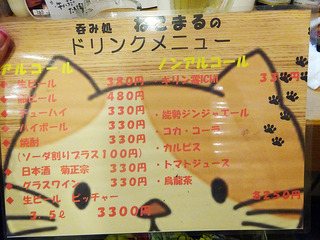 呑み処 ねこまるの
ドリンクメニュー
アルコール
生ビール 380円
480円
チューハイ 330円
ハイボール 330円
焼酎 330円
(ソーダ割りプラス100円)
日本酒 菊正宗 330円
グラスワイン 330円
生ビール ピッチャー
3,300円
ノンアルコール
キリン零ICHI
・能勢ジンジャエール
・コカ・コーラ
・カルピス
・トマトジュース
・烏龍茶
各250円